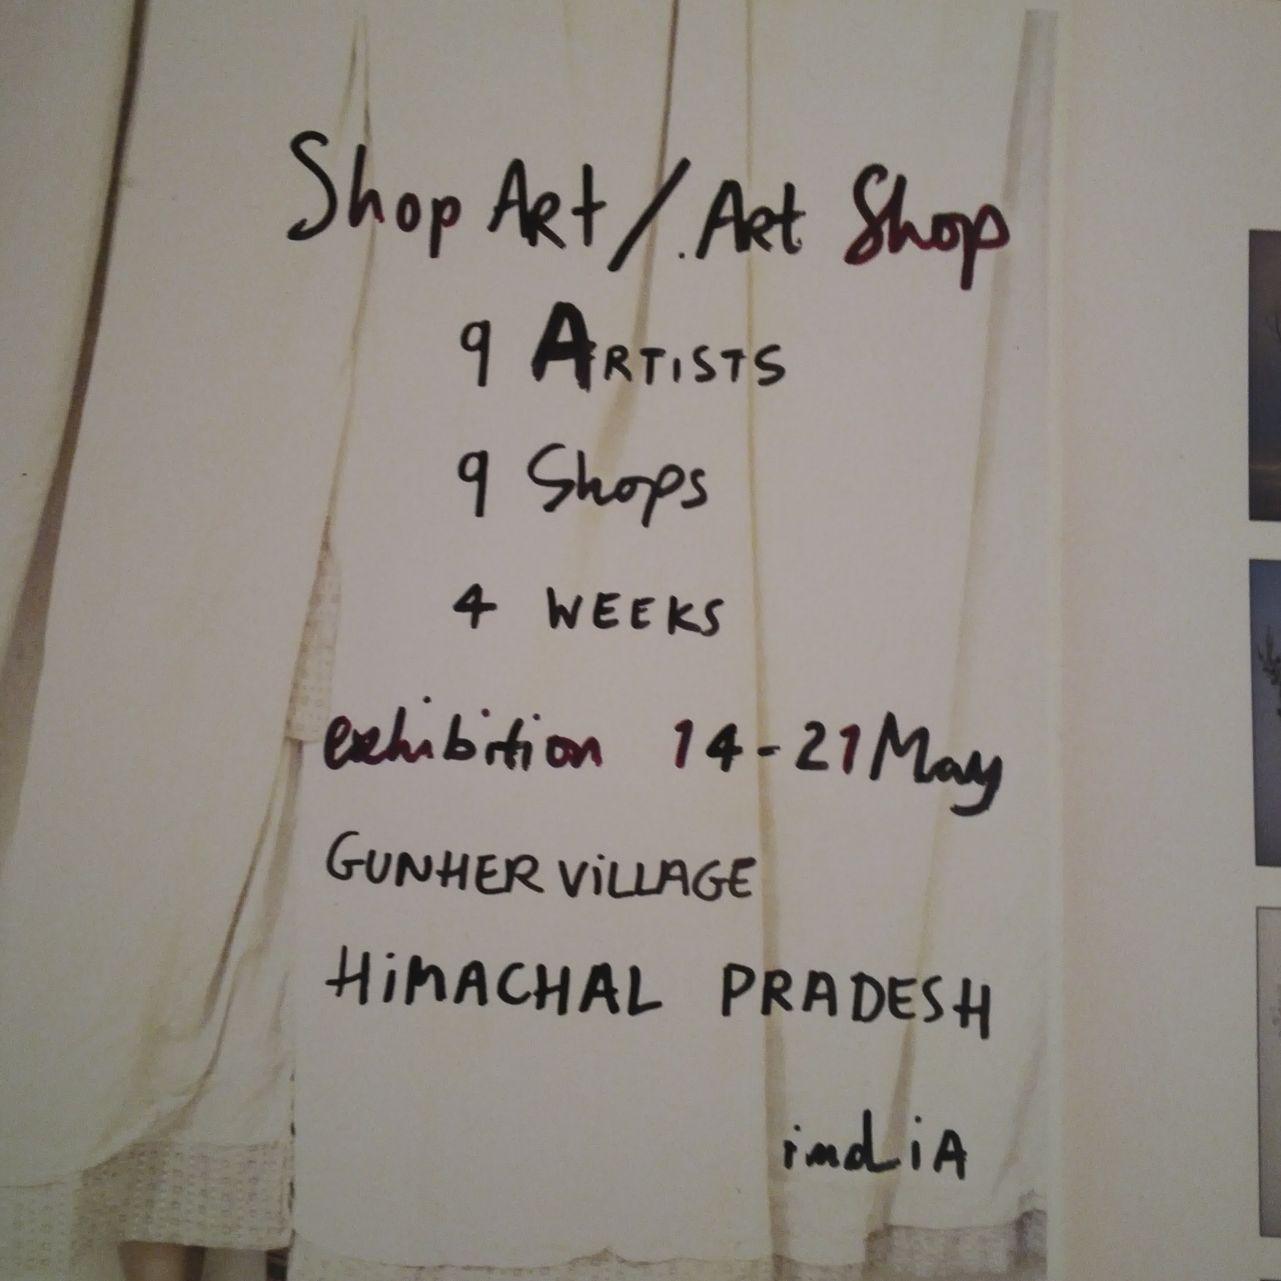 Shop Art / Art Shop
9 ARTISTS
9 Shops
4 WEEKS
exhibition 14-21 May
GUNHER ViLLAGE
HiMACHAL PRADESH
indiA